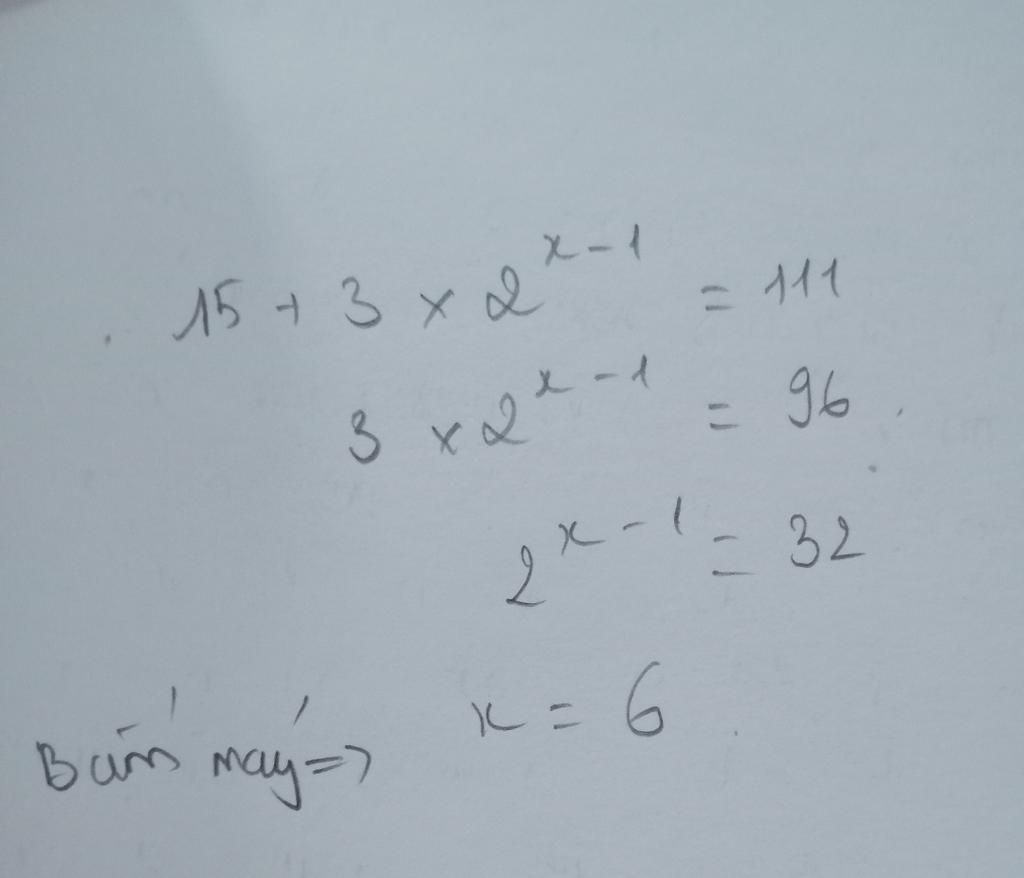 15 + 3 × 2^{x-1} = 111
3 × 2^{x-1} = 96
2^{x-1} = 32
Bấm máy => x = 6